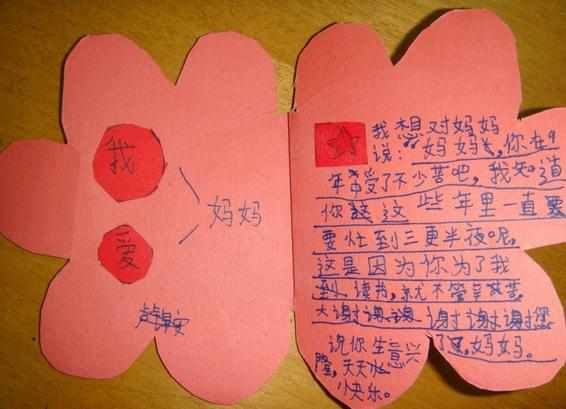 我
爱
妈妈
我想对妈妈
说：妈妈，你在9
年带受了不少苦吧，我知道
你这些年里一直要
要忙到三更半夜呢，
这是因为你为了我
读书，不管
谢谢谢谢谢谢您
了，妈妈。
说你生意兴
隆，天天
快乐。